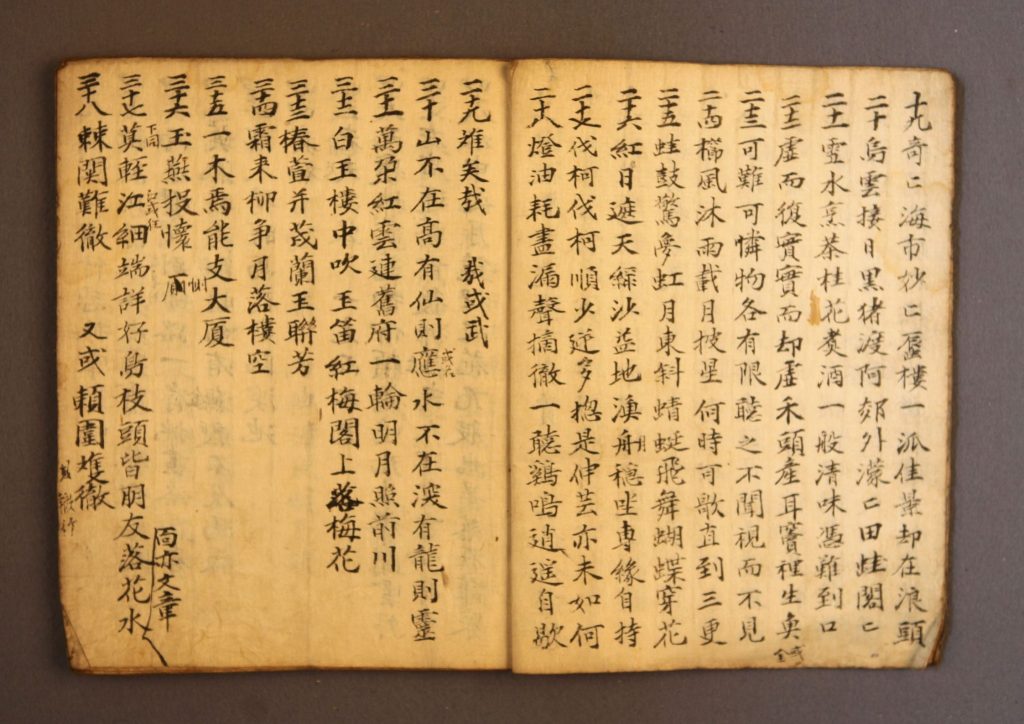 十九奇〻海市抄〻蜃樓一派佳景却在浪頭
二十烏雲接日黑猪渡阿郊外濛〻田蛙閣〻
二十一雪水烹茶桂花煑酒一般清味憑難到口
二十二虛而復實實而却虛禾頭產耳竇裡生魚
二十三可難可憐物各有限聽之不聞視而不見
二十四櫛風沐雨載月披星何時可歇直到三更
二十五蛙鼓驚夢虹月東斜蜻蜓飛舞蝴蝶穿花
二十六紅日遮天綠沙盖地漁舟穩坐專緣自持
二十七伐柯伐柯順少逆多揔是仲芸亦未如何
二十八燈油耗盡漏聲摘徹一聽鷄鳴逍遥自歇
二十九难矣哉 哉或武
三十山不在高有仙則應水不在深有龍則靈
三十一萬朶紅雲連舊府一輪明月照前川
三十二白玉樓中吹玉笛紅梅閣上落梅花
三十三椿萱并茂蘭玉聯芳
三十四霜来柳争月落樓空
三十五一木焉能支大厦
三十六玉燕投懷
三十七莫輕江細端詳好鳥枝頭皆朋友落花水面亦文章
三十八棘闈難徹 又或頼圍难徹